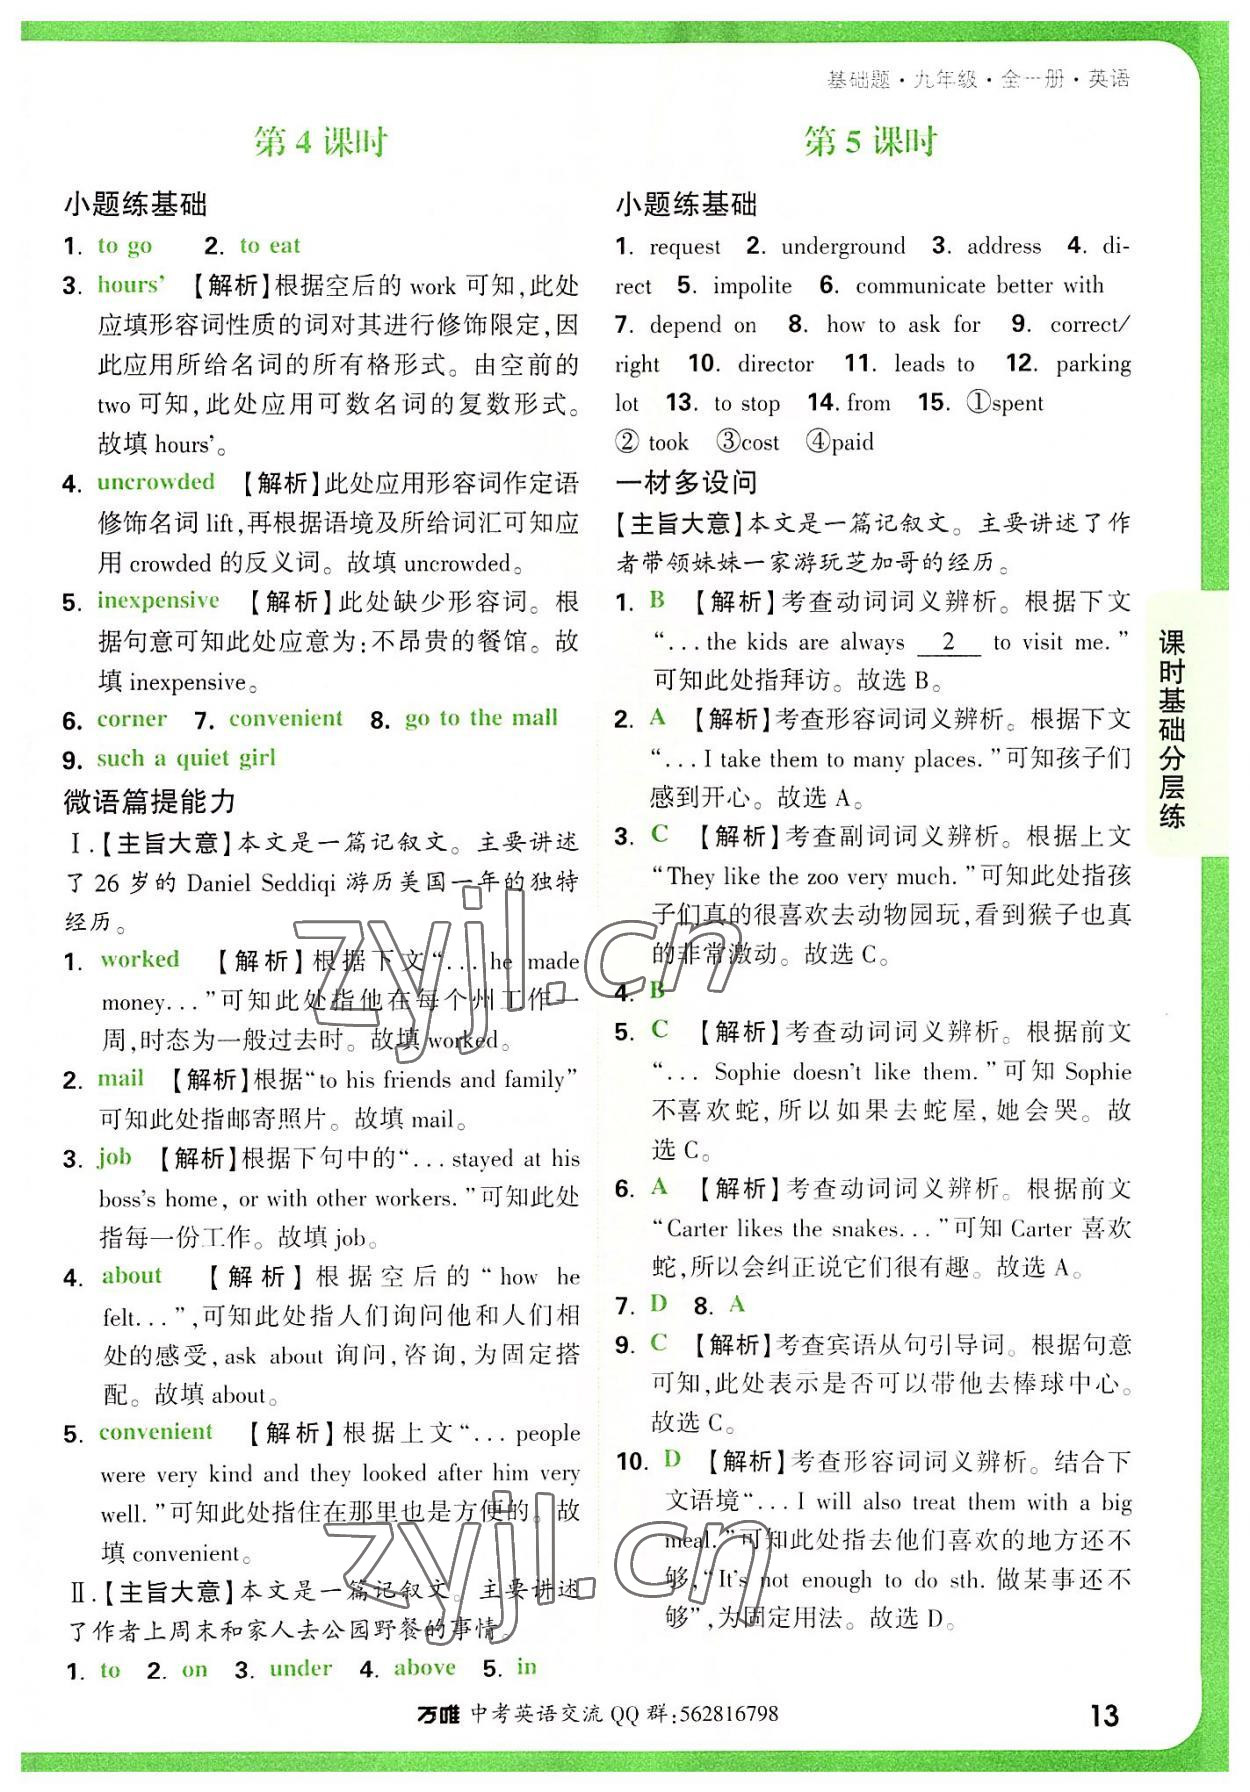 基础题·九年级·全一册·英语
第 4 课时
小题练基础
1. to go 2. to eat
3. hours’ 【解析】根据空后的 work 可知,此处
应填形容词性质的词对其进行修饰限定,因
此应用所给名词的所有格形式。由空前的
two 可知,此处应用可数名词的复数形式。
故填 hours’。
4. uncrowded 【解析】此处应用形容词作定语
修饰名词 lift,再根据语境及所给词汇可知应
用 crowded 的反义词。故填 uncrowded。
5. inexpensive 【解析】此处缺少形容词。根
据句意可知此处应意为:不昂贵的餐馆。故
填 inexpensive。
6. corner 7. convenient 8. go to the mall
9. such a quiet girl
微语篇提能力
Ⅰ.【主旨大意】本文是一篇记叙文。主要讲述
了 26 岁的 Daniel Seddiqi 游历美国一年的独特
经历。
1. worked 【解析】根据下文“... he made
money...”可知此处指他在每个州工作一
周,时态为一般过去时。故填 worked。
2. mail 【解析】根据“to his friends and family”
可知此处指邮寄照片。故填 mail。
3. job 【解析】根据下句中的“... stayed at his
boss's home, or with other workers.”可知此处
指每一份工作。故填 job。
4. about 【解析】根据空后的“how he
felt...”,可知此处指人们询问他和人们相
处的感受,ask about 询问,咨询,为固定搭
配。故填 about。
5. convenient 【解析】根据上文“... people
were very kind and they looked after him very
well.”可知此处指住在那里也是方便的。故
填 convenient。
Ⅱ.【主旨大意】本文是一篇记叙文。主要讲述
了作者上周末和家人去公园野餐的事情。
1. to 2. on 3. under 4. above 5. in
第 5 课时
小题练基础
1. request 2. underground 3. address 4. di-
rect 5. impolite 6. communicate better with
7. depend on 8. how to ask for 9. correct/
right 10. director 11. leads to 12. parking
lot 13. to stop 14. from 15. ①spent
② took ③cost ④paid
一材多设问
【主旨大意】本文是一篇记叙文。主要讲述了作
者带领妹妹一家游玩芝加哥的经历。
1. B 【解析】考查动词词义辨析。根据下文
“... the kids are always 2 to visit me.”
可知此处指拜访。故选 B。
2. A 【解析】考查形容词词义辨析。根据下文
“... I take them to many places.”可知孩子们
感到开心。故选 A。
3. C 【解析】考查副词词义辨析。根据上文
“They like the zoo very much.”可知此处指孩
子们真的很喜欢去动物园玩,看到猴子也真
的非常激动。故选 C。
4. B
5. C 【解析】考查动词词义辨析。根据前文
“... Sophie doesn't like them.”可知 Sophie
不喜欢蛇,所以如果去蛇屋,她会哭。故
选 C。
6. A 【解析】考查动词词义辨析。根据前文
“Carter likes the snakes...”可知 Carter 喜欢
蛇,所以会纠正说它们很有趣。故选 A。
7. D 8. A
9. C 【解析】考查宾语从句引导词。根据句意
可知,此处表示是否可以带他去棒球中心。
故选 C。
10. D 【解析】考查形容词词义辨析。结合下
文语境“... I will also treat them with a big
meal.”可知此处指去他们喜欢的地方还不
够,“It's not enough to do sth. 做某事还不
够”,为固定用法。故选 D。
课时基础分层练
zyjl.cn
zyjl.cn
万唯 中考英语交流 QQ 群:562816798
13